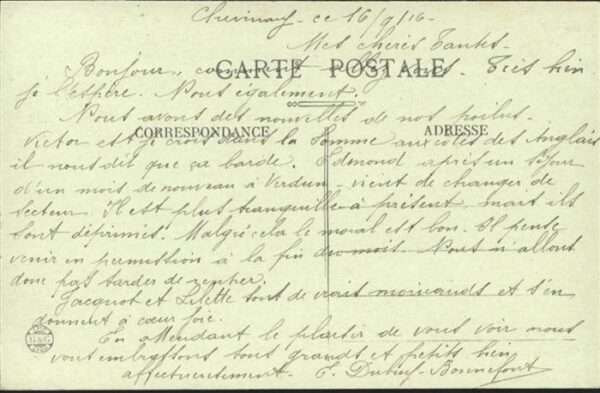 Chevinay - ce 16/9/16 -
Mes chères Tantes -
CARTE POSTALE
Bonjour, comment allez vous. Très bien
je l'espère. Nous également.
Nous avons des nouvelles de nos poilus -
CORRESPONDANCE
ADRESSE
Victor est je crois dans la Somme aux côtés des Anglais
il nous dit que ça barde. Edmond après un séjour
d'un mois de nouveau à Verdun - vient de changer de
secteur. Il est plus tranquille à présent, mais ils
sont déprimés. Malgré cela le moral est bon. Il pense
venir en permission à la fin du mois - Nous n'allons
donc pas tarder de rentrer.
Jacquot et Lilette sont de vrais moineauds et s'en
donnent à cœur joie.
En attendant le plaisir de vous voir nous
vous embrassons tous grands et petits bien
affectueusement - Dubeuf-Bonnefont